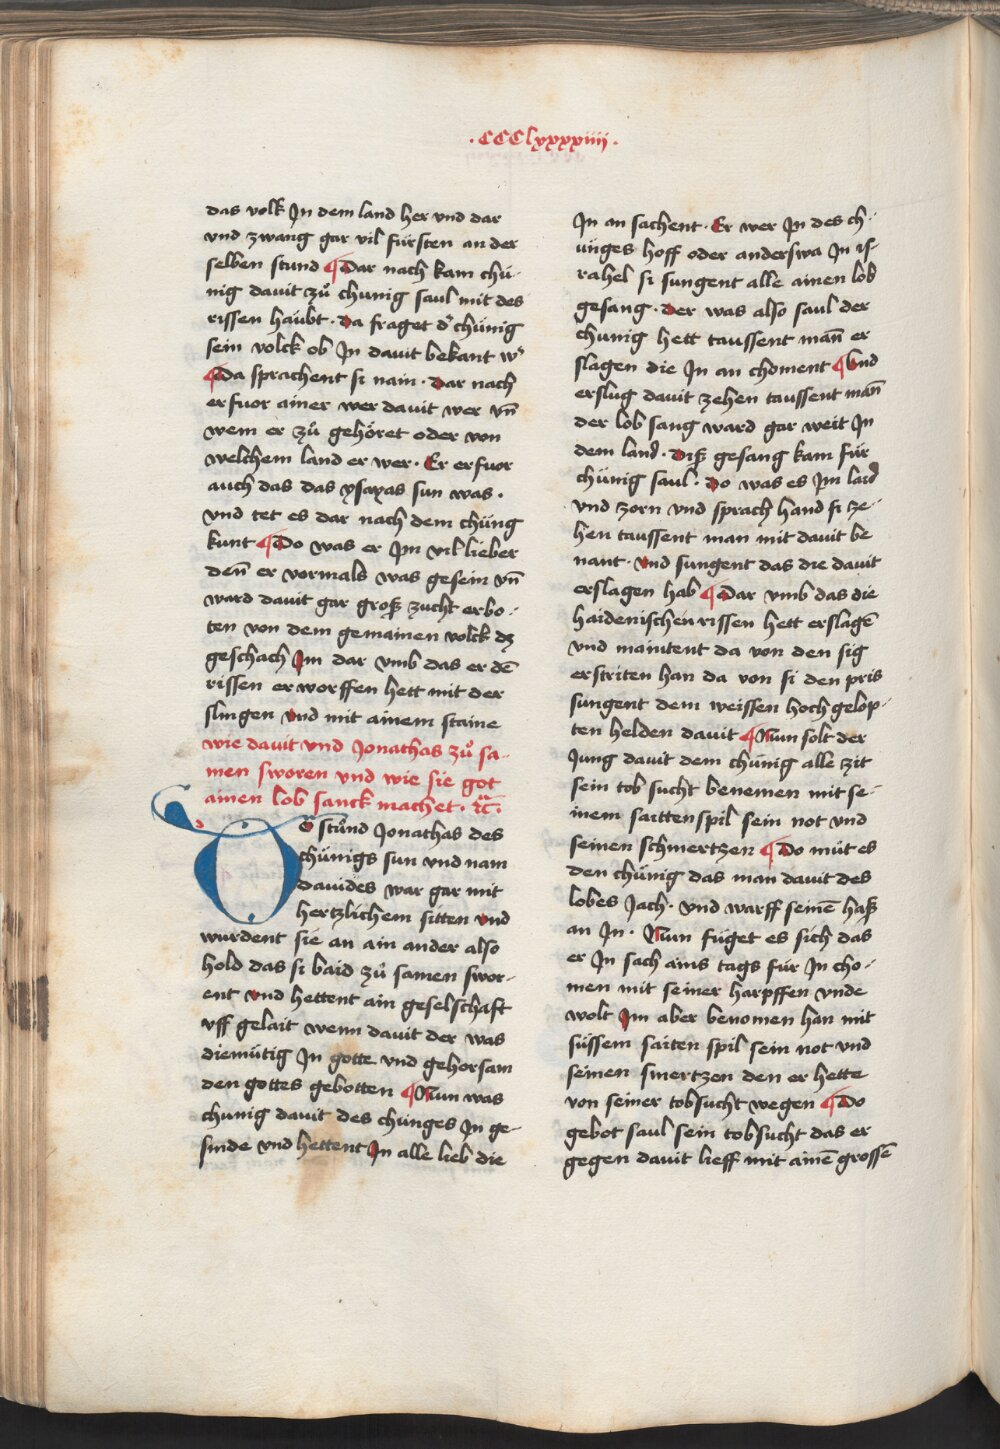 ·CCClxxxxiiii·
das volk Jn dem land her vnd dar
vnd zwang gar vil fürsten an der
selben stund ¶Dar nach kam chü-
nig davit zů chunig saul mit des
rissen haubt · Da fraget d' chünig
sein volck ob Jn davit bekant w'
¶Da sprachent si nain · Dar nach
erfuor ainer wer davit wer vn̄
wem er zů gehöret oder von
welchem land er wer · Er erfuor
auch das das ysayas sun was ·
vnd tet es dar nach dem chüng
kunt ¶Do was er Jm vil lieber
den̄ er vormals was gesein vn̄
ward davit gar groß zucht erbo-
ten von dem gemainen volck dz
geschach Jm dar vmb das er dē
rissen erworffen hett mit der
slingen vnd mit ainem staine
wie davit vnd Jonathas zů sa-
men sworen vnd wie sie got
ainen lob sanck machet · ꝛc̄ ·
Do stůnd Jonathas des
chünigs sun vnd nam
davides war gar mit
hertzlichem sitten vnd
wurdent sie an ain ander also
hold das si baid zů samen swor-
ent vnd hettent ain geselschaft
vff gelait wenn davit der was
diemütig Jn gotte vnd gehorsam
den gottes gebotten ¶Nun was
chunig davit des chünges Jn ge-
sinde vnd hettent Jn alle lieb die
Jn an sachent · Er wer Jn des ch-
unges hoff oder anderswa Jn is-
rahel si sungent alle ainen lob
gesang · Der was also saul der
chunig hett taussent man̄ er
slagen die Jn an choment ¶Vnd
erslug davit zehen taussent man̄
der lob sang ward gar weit Jn
dem land · Diß gesang kam für
chünig saul · Do was es Jm laid
vnd zorn vnd sprach hand si ze-
hen taussent man mit davit be
nant · Vnd sungent das die davit
erslagen hab ¶Dar vmb das die
haidenischen rissen hett erslagē
vnd maintent da von den sig
erstriten han da von si den pris
sungent dem weissen hoch gelop-
ten helden davit ¶Nun solt der
Jung davit dem chünig alle zit
sein tob sucht benemen mit se-
inem saittenspil sein not vnd
seinen schmertzen ¶Do müt es
den chünig das man davit des
lobes Jach · vnd warff seinē haß
an Jn · Nun füget es sich das
er Jn sach ains tags für Jn cho-
men mit seiner harpffen vnde
wolt Jm aber benomen han mit
süssem saiten spil sein not vnd
seinen smertzen den er hette
von seiner tobsucht wegen ¶Do
gebot saul sein tobsucht das er
gegen davit lieff mit ainē grossē